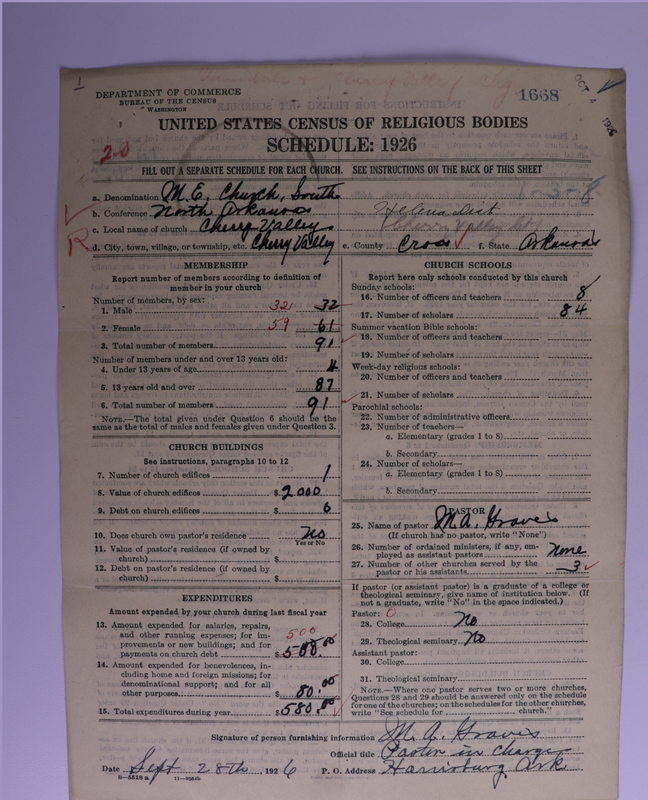 1
DEPARTMENT OF COMMERCE
BUREAU OF THE CENSUS
WASHINGTON
1668
OCT 4 1926
UNITED STATES CENSUS OF RELIGIOUS BODIES
SCHEDULE: 1926
20
FILL OUT A SEPARATE SCHEDULE FOR EACH CHURCH. SEE INSTRUCTIONS ON THE BACK OF THIS SHEET
a. Denomination M.E. Church, South
b. Conference North Arkansas Helena Dist
c. Local name of church Cherry Valley Cherry Valley
R
d. City, town, village, or township, etc. Cherry Valley e. County Cross f. State Arkansas
MEMBERSHIP
Report number of members according to definition of
member in your church
Number of members, by sex:
1. Male 32 32
2. Female 59 61
3. Total number of members 91
Number of members under and over 13 years old:
4. Under 13 years of age 4
5. 13 years old and over 87
6. Total number of members 91
NOTE.—The total given under Question 6 should be the
same as the total of males and females given under Question 3.
CHURCH BUILDINGS
See instructions, paragraphs 10 to 12
7. Number of church edifices 1
8. Value of church edifices $2000
9. Debt on church edifices $ 0
10. Does church own pastor's residence No
Yes or No
11. Value of pastor's residence (if owned by
church) $
12. Debt on pastor's residence (if owned by
church) $
EXPENDITURES
Amount expended by your church during last fiscal year
13. Amount expended for salaries, repairs,
and other running expenses; for im-
provements or new buildings; and for
payments on church debt 500 $500.00
14. Amount expended for benevolences, in-
cluding home and foreign missions; for
denominational support; and for all
other purposes $ 80.00
15. Total expenditures during year $580.00
CHURCH SCHOOLS
Report here only schools conducted by this church
Sunday schools:
16. Number of officers and teachers 8
17. Number of scholars 84
Summer vacation Bible schools:
18. Number of officers and teachers
19. Number of scholars
Week-day religious schools:
20. Number of officers and teachers
21. Number of scholars
Parochial schools:
22. Number of administrative officers
23. Number of teachers—
a. Elementary (grades 1 to 8)
b. Secondary
24. Number of scholars—
a. Elementary (grades 1 to 8)
b. Secondary
PASTOR
25. Name of pastor M.A. Graves
(If church has no pastor, write "None")
26. Number of ordained ministers, if any, em-
ployed as assistant pastors None
27. Number of other churches served by the
pastor or his assistants 3
If pastor (or assistant pastor) is a graduate of a college or
theological seminary, give name of institution below. (If
not a graduate, write "No" in the space indicated.)
Pastor: 0
28. College No
29. Theological seminary No
Assistant pastor:
30. College
31. Theological seminary
NOTE.—Where one pastor serves two or more churches,
Questions 28 and 29 should be answered only on the schedule
for one of the churches; on the schedules for the other churches,
write "See schedule for church."
Signature of person furnishing information M. A. Graves
Official title Pastor in charge
Date Sept 28th, 1926 P. O. Address Harrisburg Ark
8—5518 a